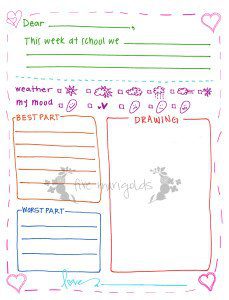 Dear ,
This week at school we
weather
my mood
BEST PART
DRAWING
five marigolds
WORST PART
love